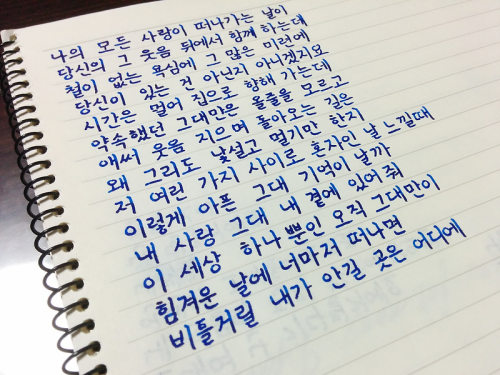 나의 모든 사랑이 떠나가는 날이
당신의 그 웃음 뒤에서 함께 하는데
철이 없는 욕심에 그 많은 미련에
당신이 있는 건 아닌지 아니겠지요
시간은 멀어 집으로 향해 가는데
약속했던 그대만은 올줄을 모르고
애써 웃음 지으며 돌아오는 길은
왜 그리도 낯설고 멀기만 한지
저 여린 가지 사이로 혼자인 날 느낄때
이렇게 아픈 그대 기억이 날까
내 사랑 그대 내 곁에 있어줘
이 세상 하나 뿐인 오직 그대만이
힘겨운 날에 너마저 떠나면
비틀거릴 내가 안길 곳은 어디에